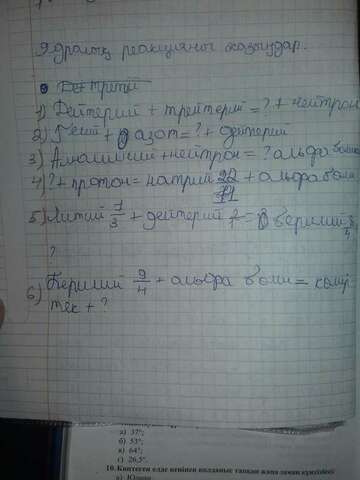 Ядролық реакцияны жазыңдар.
1) Дейтерий + трейтерий = ? + нейтрон
2) + азот = ? + дейтерий
3) Алюминий + нейтрон = ? альфа бөлш
4) ? + протон = натрий 22/11 + альфа бөлш
5) Литий 7/3 + дейтерий = бериллий 8/4
?
6) Бериллий 9/4 + альфа бөлш = көмір
тек + ?
а) 37°;
б) 53°;
в) 64°;
г) 26,5°.